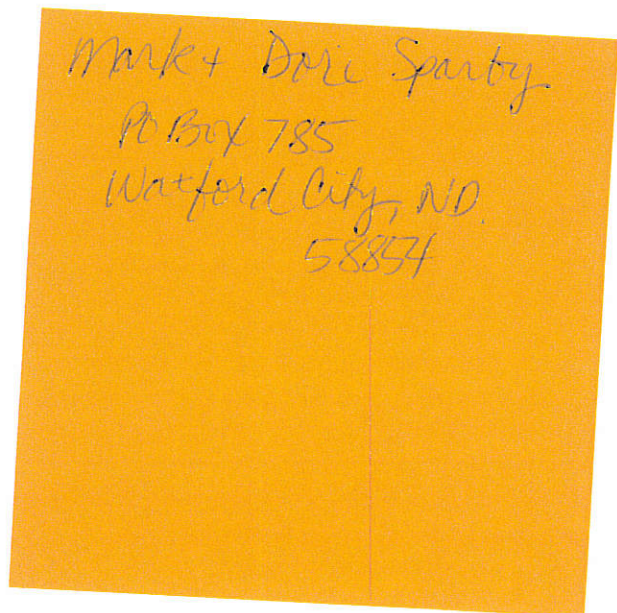 Mark + Dori Sparby
PO Box 785
Watford City, ND.
58854